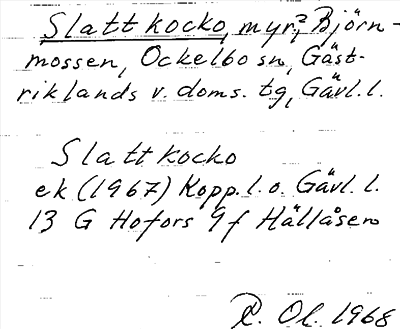 Slattkocko, myr, ? Björn-
mossen, Ockelbo sn, Gäst-
riklands v. doms. tg, Gävl. l.
Slattkocko
ek (1967) Kopp. l. o. Gävl. l.
13 G Hofors 9 f Hällåsen
R. Ol. 1968